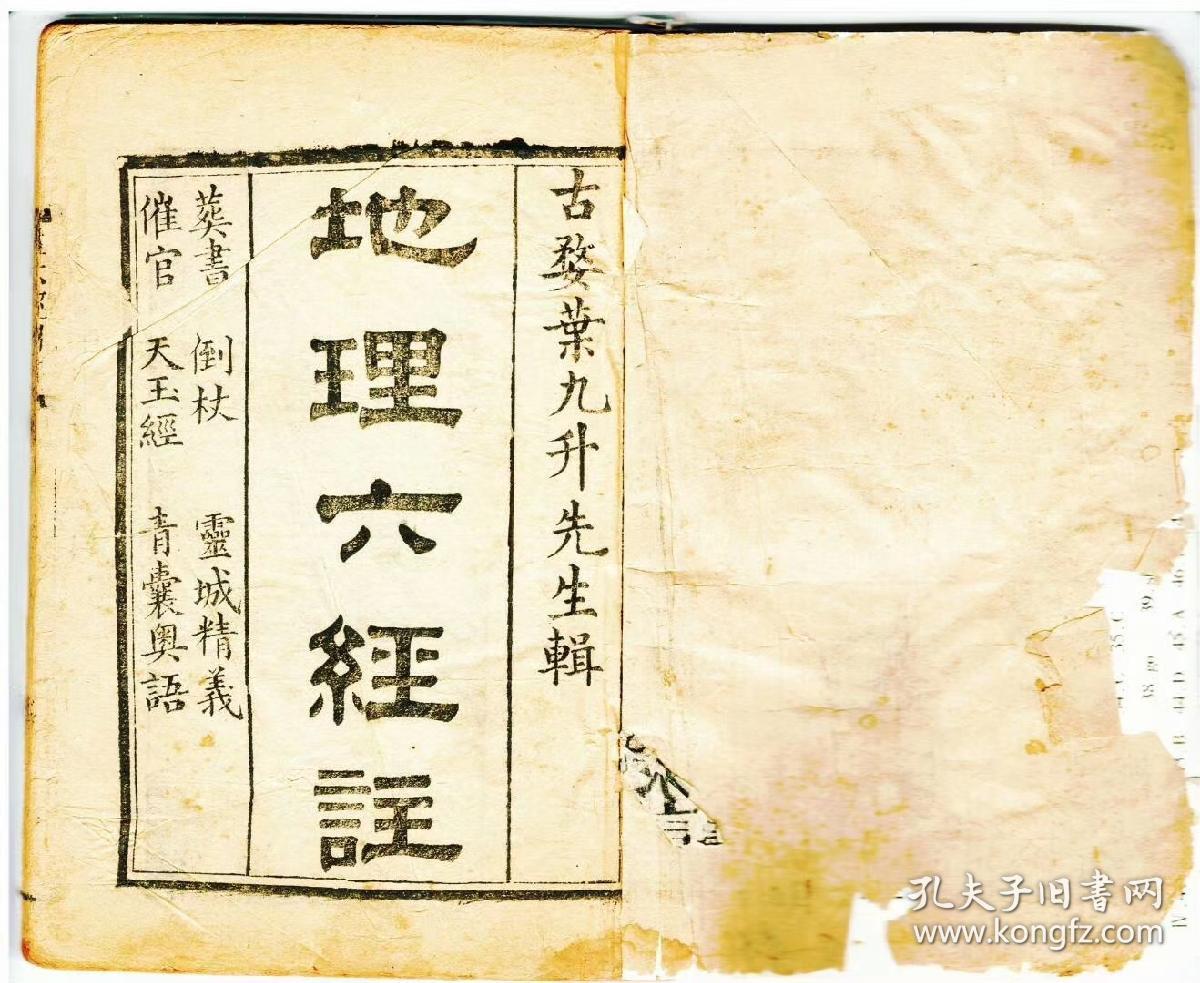 古婺葉九升先生輯
地理六經註
葬書 倒杖 靈城精義
催官 天玉經 青囊奧語
孔夫子旧书网
www.kongfz.com